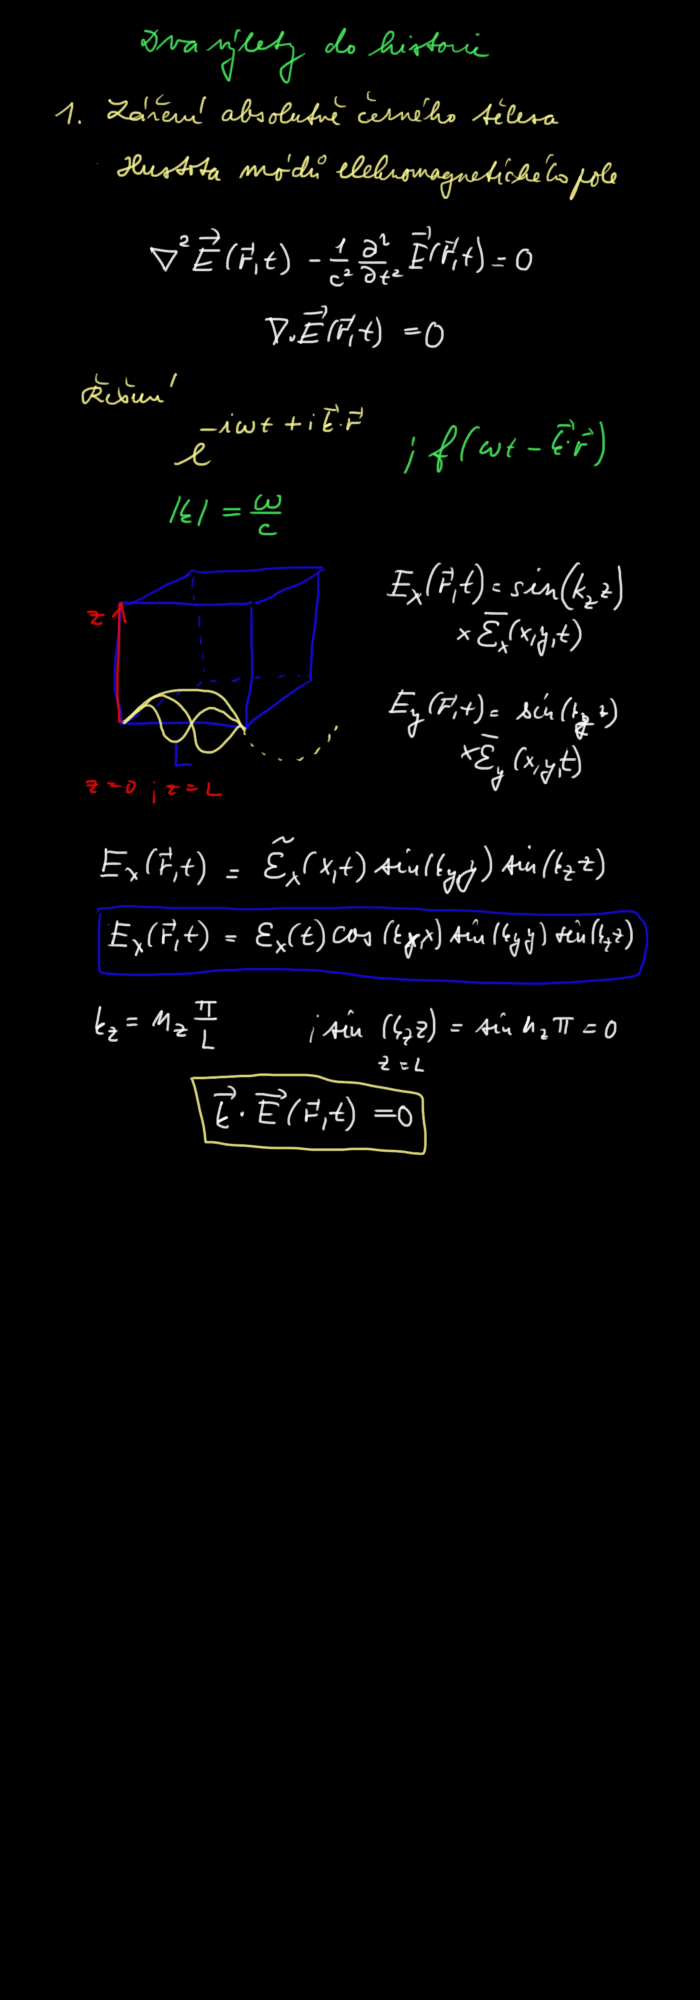 Dva výlety do historie
1. Záření absolutně černého tělesa
Hustota módů elekromagnetického pole
∇² E⃗(r⃗,t) − 1/c² ∂²/∂t² E⃗(r⃗,t) = 0
∇·E⃗(r⃗,t) = 0
Řešení
e^{−iωt + i k⃗·r⃗} ; f(ωt − k⃗·r⃗)
|k| = ω/c
z
L
z=0 ; z=L
E_x(r⃗,t) = sin(k_z z)
× ℰ̅_x(x,y,t)
E_y(r⃗,t) = sin(k_z z)
× ℰ̅_y(x,y,t)
E_x(r⃗,t) = ℰ̃_x(x,t) sin(k_y y) sin(k_z z)
E_x(r⃗,t) = ℰ_x(t) cos(k_x x) sin(k_y y) sin(k_z z)
k_z = n_z π/L ; sin (k_z z) = sin n_z π = 0
z = L
k⃗·E⃗(r⃗,t) = 0